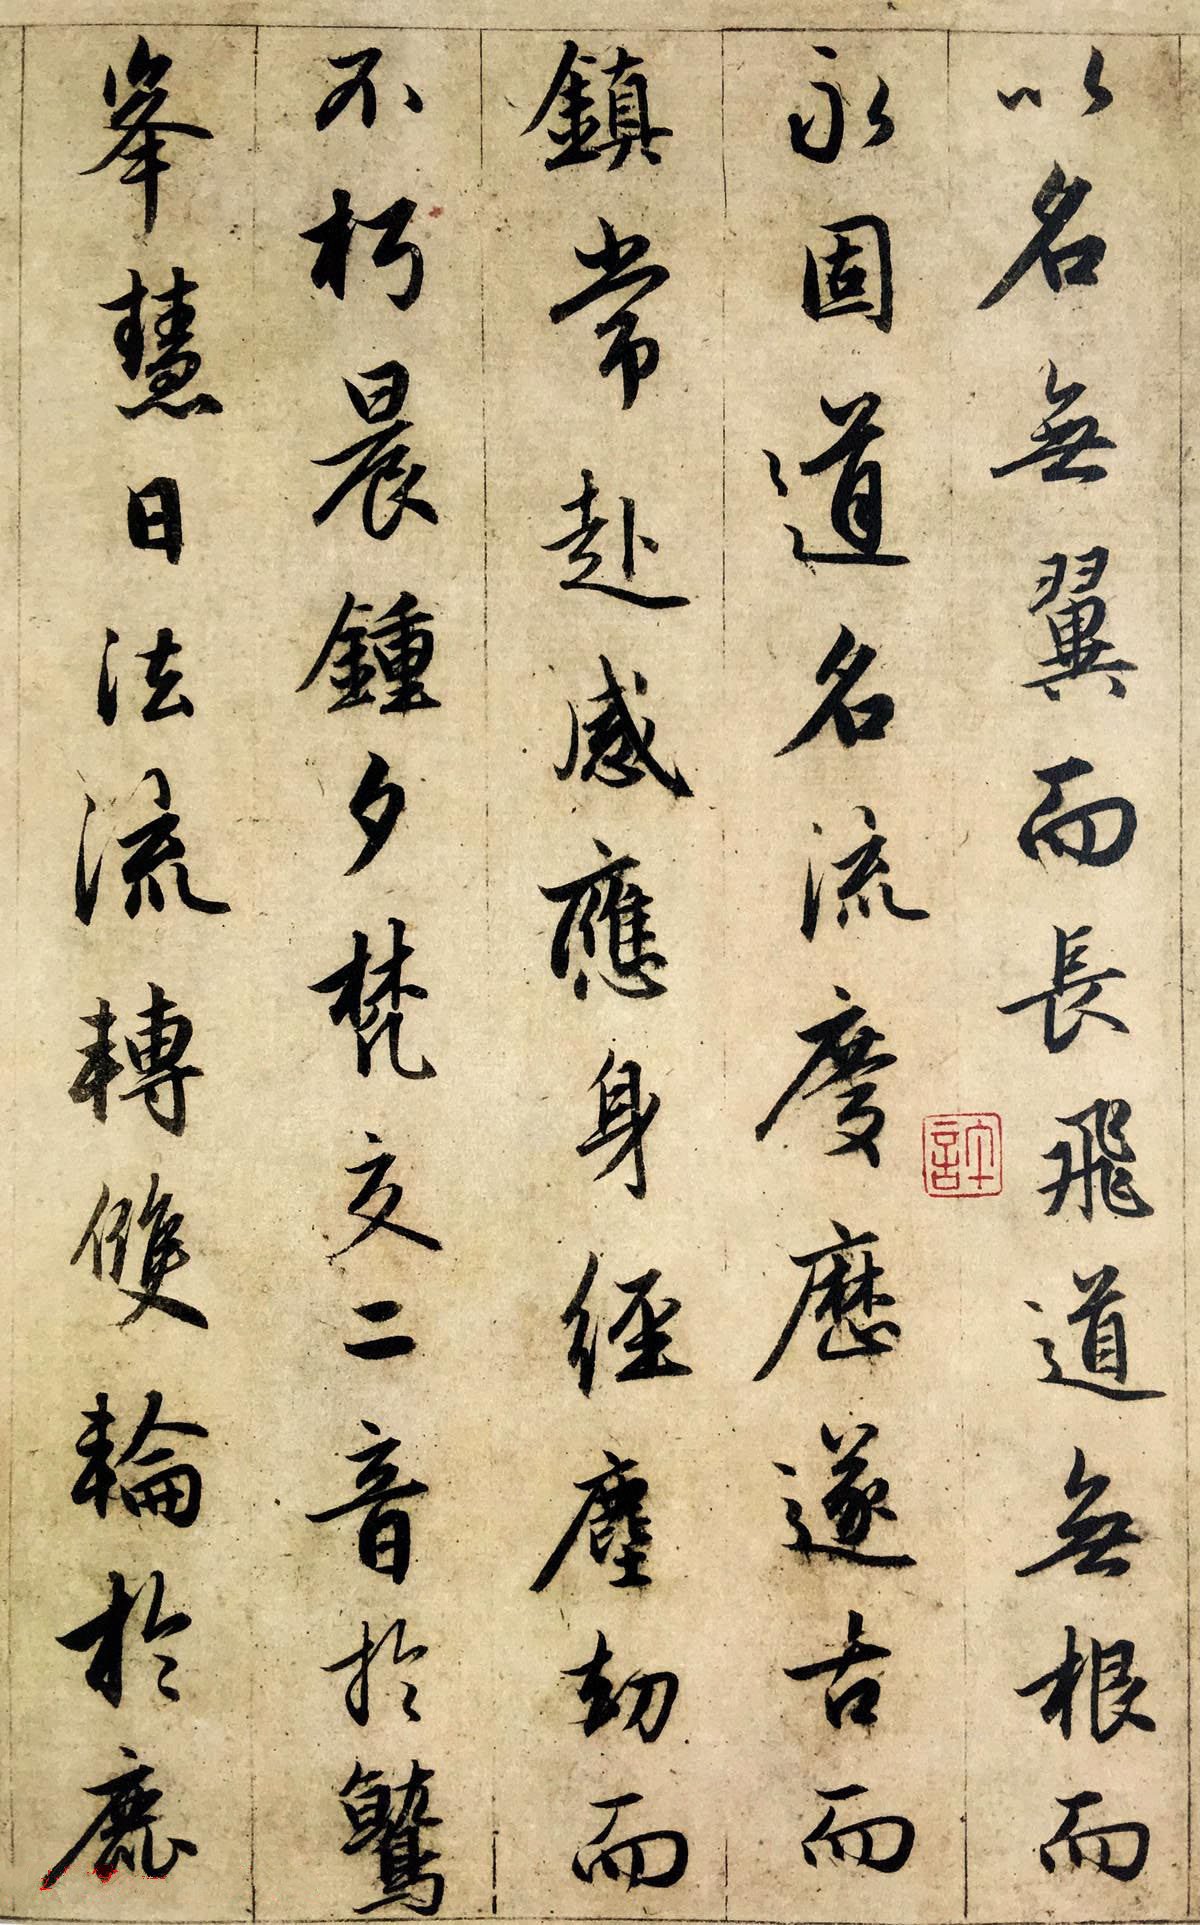 以名無翼而長飛道無根而
永固道名流慶歷遂古而
鎮常赴感應身經塵劫而
不朽晨鍾夕梵交二音於鷲
峯慧日法流轉雙輪於鹿